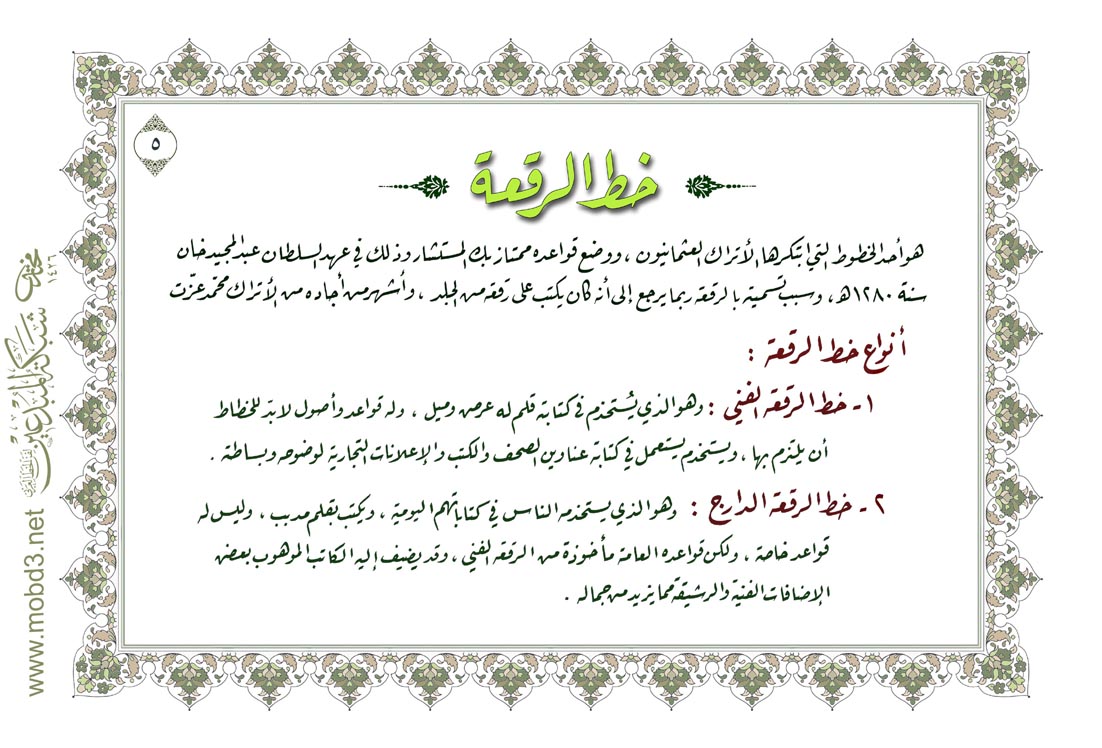 ٥
خط الرقعة
هو أحد الخطوط التي ابتكرها الأتراك العثمانيون ، ووضع قواعده ممتاز بك المستشار وذلك في عهد السلطان عبد المجيد خان
سنة ١٢٨٠ هـ ، وسبب تسمية بالرقعة ربما يرجع إلى أنه كان يكتب على رقعة من الجلد ، وأشهر من أجاده من الأتراك محمد عزت
أنواع خط الرقعة :
١ - خط الرقعة الفني : وهو الذي يُستخدم في كتابة قلم له عرض وميل ، وله قواعد وأصول لابدّ للخطاط
أن يلتزم بها ، ويستخدم يستعمل في كتابة عناوين الصحف والكتب والإعلانات التجارية لوضوحه وبساطة .
٢ - خط الرقعة الدارج : وهو الذي يستخدمه الناس في كتاباتهم اليومية ، ويكتب بقلم مدبب ، وليس له
قواعد خاصة ، ولكن قواعده العامة مأخوذة من الرقعة الفني ، وقد يضيف إليه الكاتب الموهوب بعض
الإضافات الفنية والرشيقة مما يزيد من جماله .
www.mobd3.net شبكة المبدعين
١٤٢٦